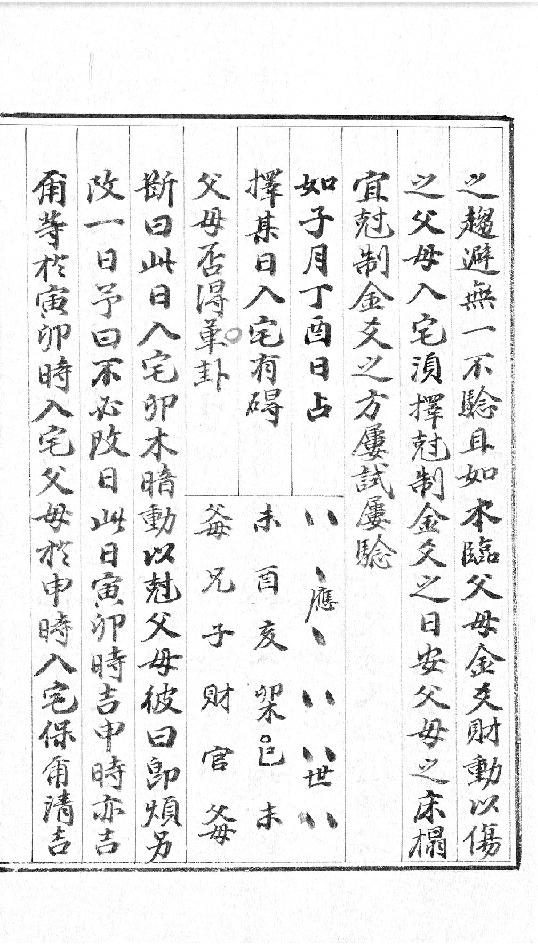 之趨避無一不驗且如木臨父母金爻財動以傷
之父母入宅湏擇尅制金爻之日安父母之床榻
宜尅制金爻之方屢試屢驗
如子月丁酉日占
擇某日入宅有碍
父母否得革卦
應 世
未 酉 亥 卯木 巳 未
父母 兄 子 財 官 父母
斷曰此日入宅卯木暗動以尅父母彼曰即煩另
改一日予曰不必改日此日寅卯時吉申時亦吉
爾等於寅卯時入宅父母於申時入宅保爾清吉